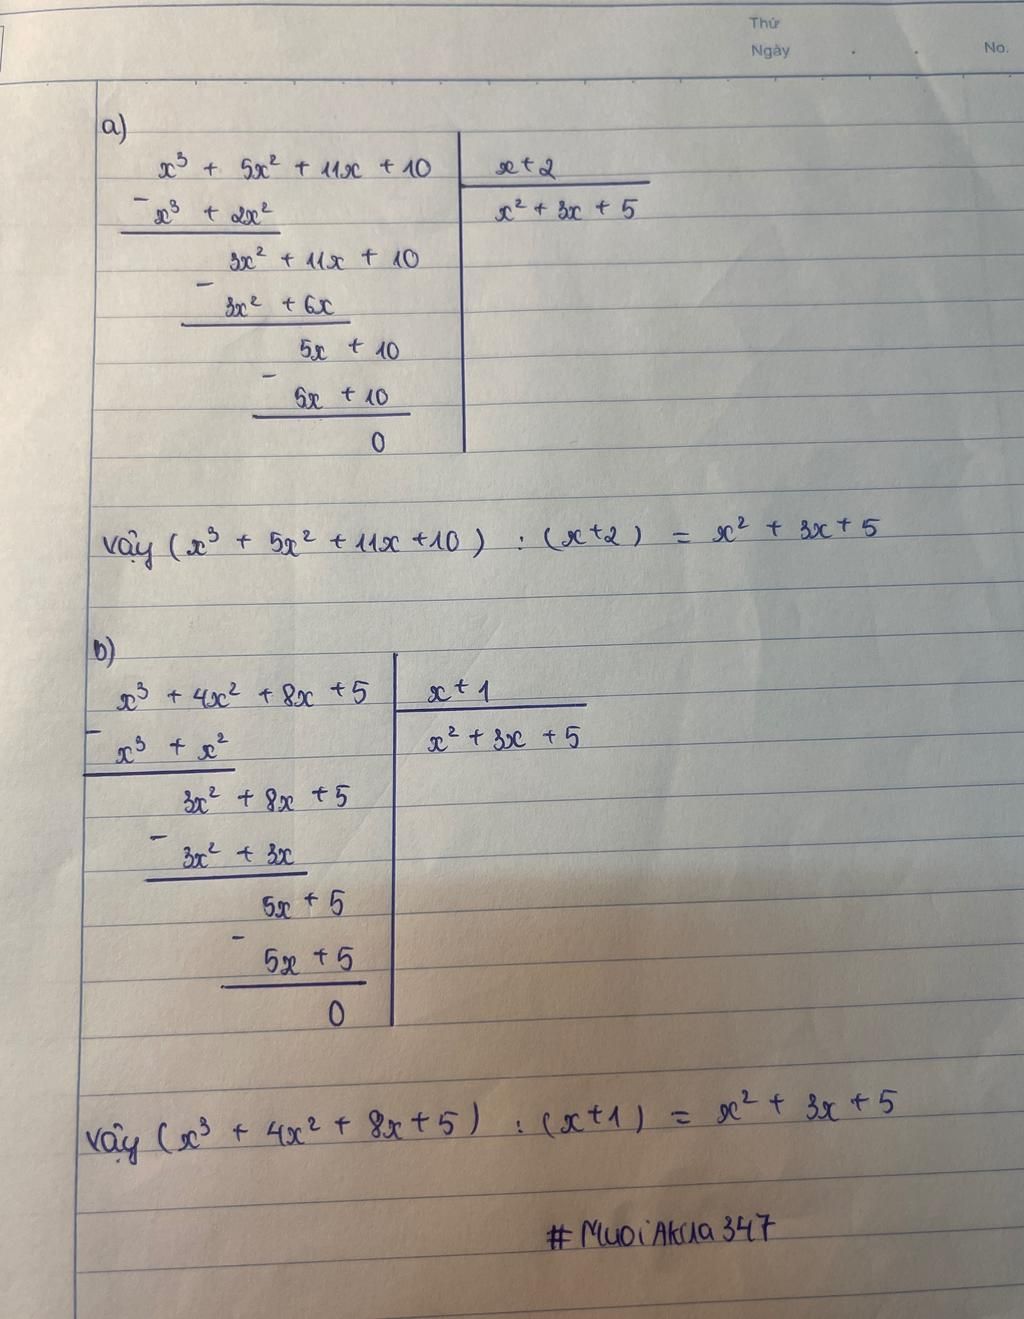 Thứ
Ngày . . No.
a)
x³ + 5x² + 11x + 10 | x+2
- x³ + 2x² | x² + 3x + 5
3x² + 11x + 10
- 3x² + 6x
5x + 10
- 5x + 10
0
Vậy (x³ + 5x² + 11x + 10) : (x+2) = x² + 3x + 5
b)
x³ + 4x² + 8x + 5 | x + 1
- x³ + x² | x² + 3x + 5
3x² + 8x + 5
- 3x² + 3x
5x + 5
- 5x + 5
0
Vậy (x³ + 4x² + 8x + 5) : (x+1) = x² + 3x + 5
#MuoiAkua347